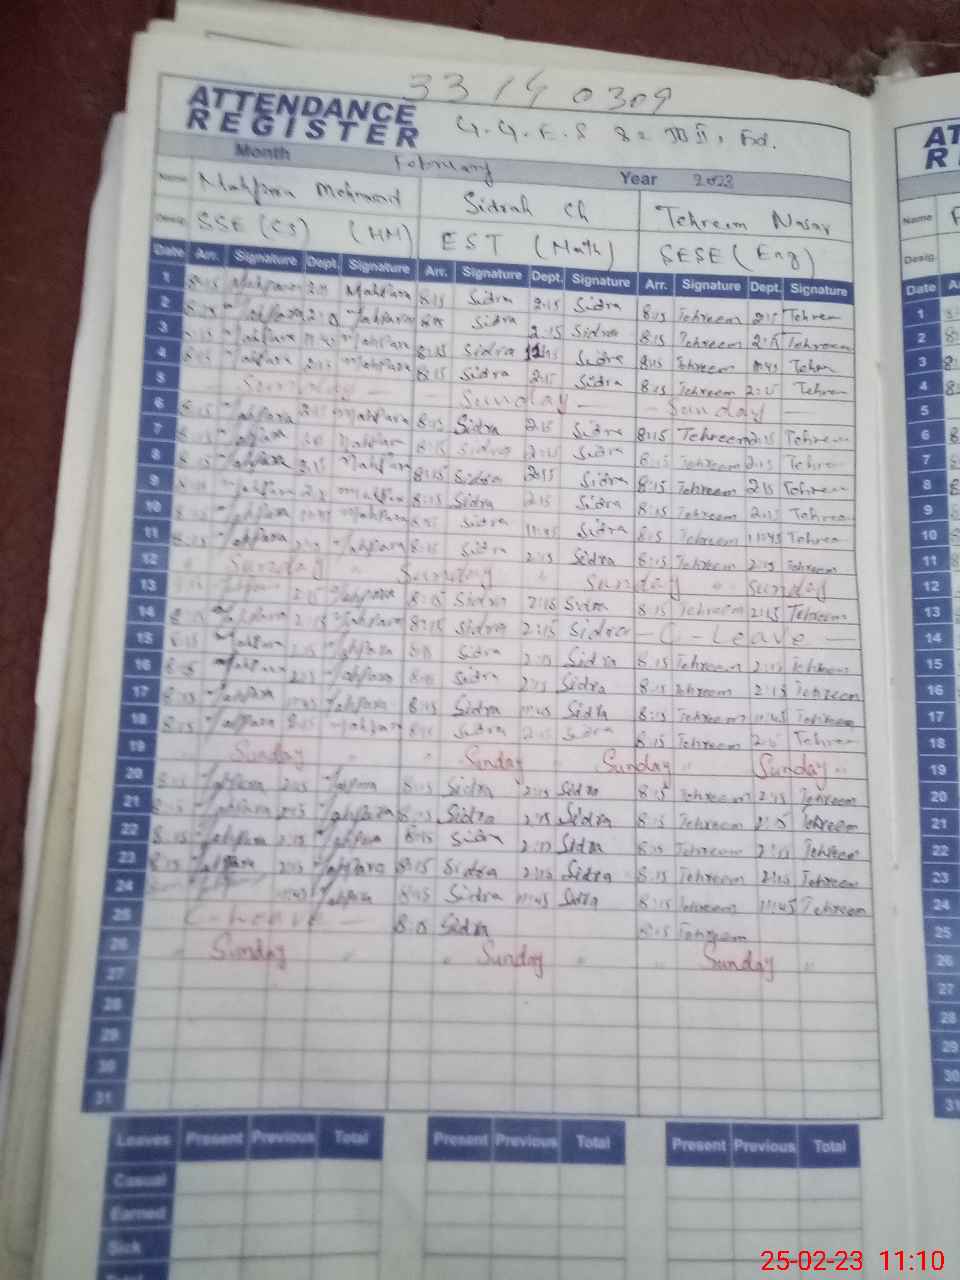 33140309
ATTENDANCE
REGISTER
G.G.E.S 82 JB II, Fd.
Month February Year 2023
Name Mahpara Mehmood Sidrah Ch Tehreem Nasar
Desig. SSE (CS) (HM) EST (Math) SESE (Eng)
Date Arr. Signature Dept. Signature Arr. Signature Dept. Signature Arr. Signature Dept. Signature
1 8:15 Mahpara Mahpara 8:15 Sidra 2:15 Sidra 8:15 Tehreem 2:15 Tehreem
2 Mahpara Mahpara Sidra 2:15 Sidra 8:15 Tehreem 2:15 Tehreem
3 Mahpara Mahpara 8:15 Sidra Sidra 8:15 Tehreem 11:45 Tehreem
4 Mahpara 2:15 Mahpara 8:15 Sidra 2:15 Sidra 8:15 Tehreem 2:15 Tehreem
5 Sunday Sunday Sunday
6 8:15 Mahpara 2:15 Mahpara 8:15 Sidra 2:15 Sidra 8:15 Tehreem 2:15 Tehreem
7 8:15 Mahpara Mahpara 8:15 Sidra 2:15 Sidra 8:15 Tehreem 2:15 Tehreem
8 8:15 Mahpara 2:15 Mahpara 8:15 Sidra 2:15 Sidra 8:15 Tehreem 2:15 Tehreem
9 Mahpara Mahpara 8:15 Sidra 2:15 Sidra 8:15 Tehreem 2:15 Tehreem
10 8:15 Mahpara Mahpara Sidra 11:45 Sidra 8:15 Tehreem 11:45 Tehreem
11 8:15 Mahpara Mahpara 8:15 Sidra 2:15 Sidra 8:15 Tehreem 2:15 Tehreem
12 Sunday Sunday Sunday Sunday
13 2:15 Mahpara 8:15 Sidra 2:15 Sidra 8:15 Tehreem 2:15 Tehreem
14 8:15 Mahpara 2:15 Mahpara 8:15 Sidra 2:15 Sidra - C - Leave -
15 8:15 Mahpara 2:15 Mahpara 8:15 Sidra 2:15 Sidra 8:15 Tehreem 2:15 Tehreem
16 8:15 Mahpara 2:15 Mahpara 8:15 Sidra 2:15 Sidra 8:15 Tehreem 2:15 Tehreem
17 8:15 Mahpara 11:45 Mahpara 8:15 Sidra 11:45 Sidra 8:15 Tehreem 11:45 Tehreem
18 8:15 Mahpara 2:15 Mahpara 8:15 Sidra 2:15 Sidra 8:15 Tehreem 2:15 Tehreem
19 Sunday Sunday Sunday Sunday
20 8:15 Mahpara 2:15 Mahpara 8:15 Sidra 2:15 Sidra 8:15 Tehreem 2:15 Tehreem
21 8:15 Mahpara 2:15 Mahpara 8:15 Sidra 2:15 Sidra 8:15 Tehreem 2:15 Tehreem
22 8:15 Mahpara 2:15 Mahpara 8:15 Sidra 2:15 Sidra 8:15 Tehreem 2:15 Tehreem
23 8:15 Mahpara 2:15 Mahpara 8:15 Sidra 2:15 Sidra 8:15 Tehreem 2:15 Tehreem
24 11:45 Mahpara 8:15 Sidra 11:45 Sidra 8:15 Tehreem 11:45 Tehreem
25 C-Leave 8:15 Sidra 8:15 Tehreem
26 Sunday Sunday Sunday
27
28
29
30
31
Leaves Present Previous Total Present Previous Total Present Previous Total
Casual
Earned
Sick
Name
Desig.
Date
1
2
3
4
5
6
7
8
9
10
11
12
13
14
15
16
17
18
19
20
21
22
23
24
25
26
27
28
29
30
31
25-02-23 11:10